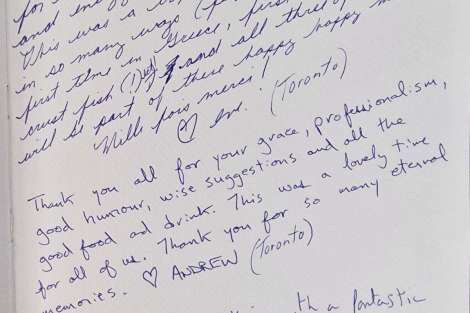 for
and en
This was a
in so many ways (f
first time in Greece, first
crust fish (!) and all three
will be part of these happy happy m
Mille fois merci!
♡ Eve. (Toronto)
Thank you all for your grace, professionalism,
good humour, wise suggestions and all the
good food and drink. This was a lovely time
for all of us. Thank you for so many eternal
memories. ♡ ANDREW (Toronto)
th a fantastic